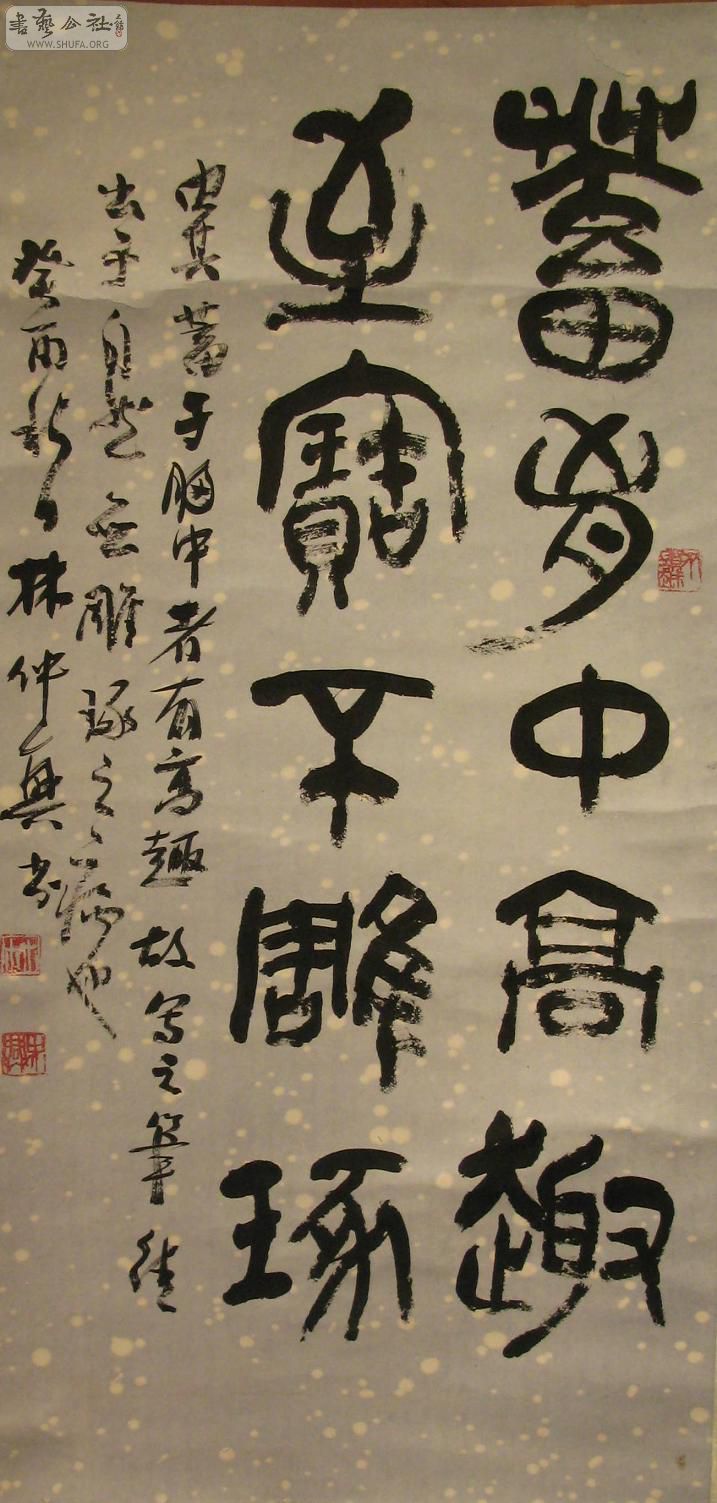 書藝公社
WWW.SHUFA.ORG
蓄胷中高趣
至寶不雕琢
由其蓄于胸中者有高趣故寫之筆往
出乎自然無雕琢之病也
癸酉秋林仲興書